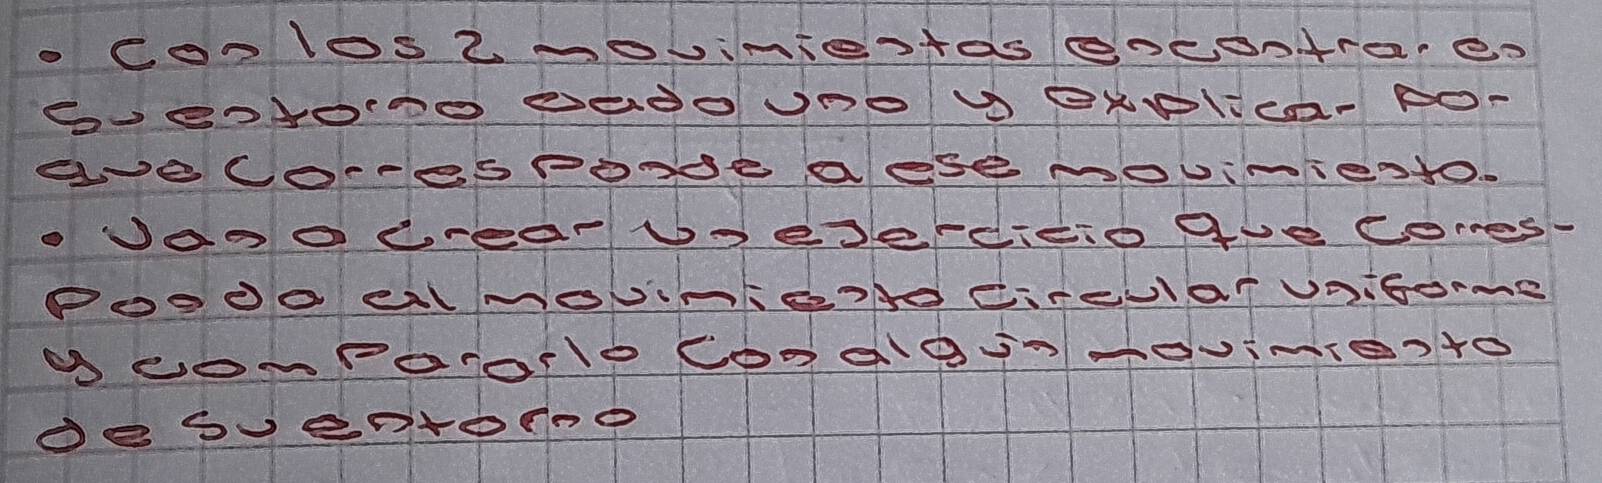 • Con los 2 movimientos encontrar en
su entorno cada uno y explicar por
que corresponde a ese movimiento.
• Van a crear un ejercicio que corres-
ponda al movimiento circular uniforme
y compararlo con algún movimiento
de su entorno